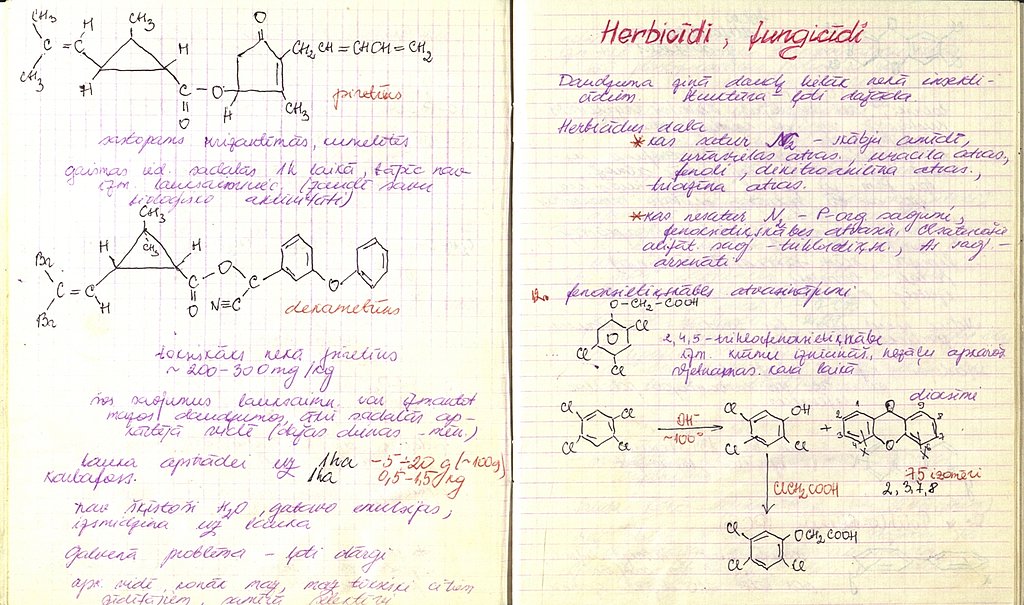 CH3
CH3
H
C=C
CH3
H
H
O
CH2CH=CHCH=CH2
C-O
O
H
CH3
piretrīns
sastopams krizantēmās,
gaismas sadalās 1h laikā, tāpēc nav
izm. lauksaimniec. (zaudē savu
bioloģisko aktivitāti)
CH3
CH3
H
H
Br
C=C
Br
H
C
O
O
C
N≡C
O
dekametrīns
toksiskāks nekā piretrīns
~200-300mg/kg
šos savojumus lauksaimn. var izmantot
mazos daudzumos, ātri sadalās ap-
kārtējā vidē (dažas dienas - mēn.)
Lauka apstrādei uz 1ha - 5÷20 g (~100g)
Karbofoss. 1ha 0,5-1,5 kg
nav šķīstoši H2O, gatavo emulsijas,
izsmidzina uz lauka
Galvenā problēma - ļoti dārgi
apk. vidē, nonāk maz, maz toksiski citiem
Herbicīdi, fungicīdi
Daudzuma ziņā daudz lielāk nekā insekti-
cīdiem. Struktūra ļoti dažāda.
Herbicīdus dala
*kas satur N2 - skābju amīdi,
urīnvielas atvas., uracila atvas.,
fenoli, dinitroanilīna atvas.,
triazīna atvas.
*kas nesatur N2 - P-org savojumi,
fenoksietiķskābes atvasin.,
alifāt. savj - trihloretiķsk., As savj -
arsenāti
fenoksietiķskābes atvasinājumi
O-CH2-COOH
Cl
Cl
Cl
2,4,5-trihlorfenoksietiķskābe
izm. krūmu iznīcināš., nezāļu apkaroš
Vjetnamas kara laikā
dioksīni
Cl Cl
Cl Cl
OH-
~100°
Cl OH
Cl Cl
+
1 2 3 4
O
O
9 8 7 6
75 izomēri
2,3,7,8
ClCH2COOH
Cl OCH2COOH
Cl Cl